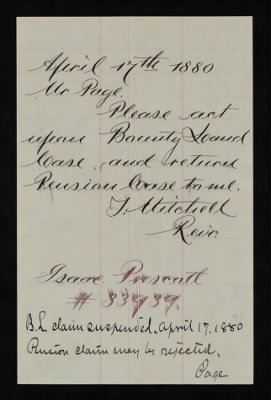 April 17th 1880
Mr Page.
Please act
upon Bounty Land
Case, and return
Pension Case to me.
T. Mitchell
Revr.
Isaac Prescott
# 33939.
B.L claim suspended. April 17, 1880
Pension claim may be rejected.
Page